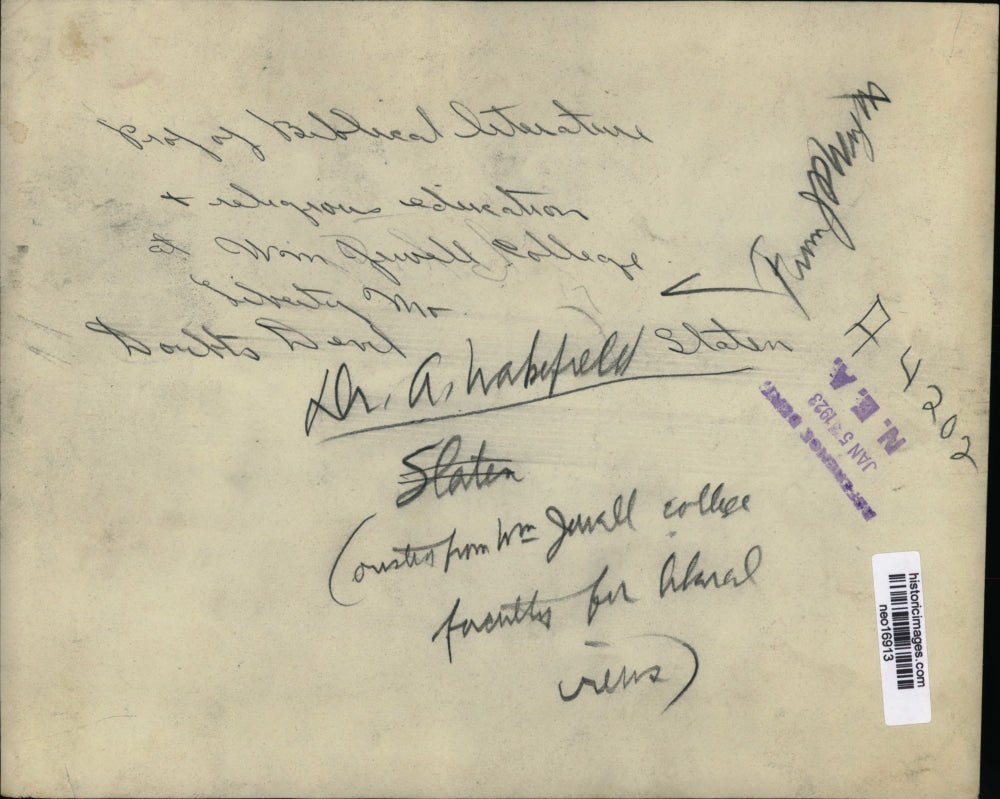 Prof of Biblical literature
& religious education
at Wm Jewell College
Liberty Mo
Doubts Devil
Dr. A. Wakefield Slaten
Slaten
(ousted from Wm Jewell college
faculty for liberal
views)
D 4202
REFERENCE DEPT.
JAN 5 1923
N. E. A.
historicimages.com
neo16913